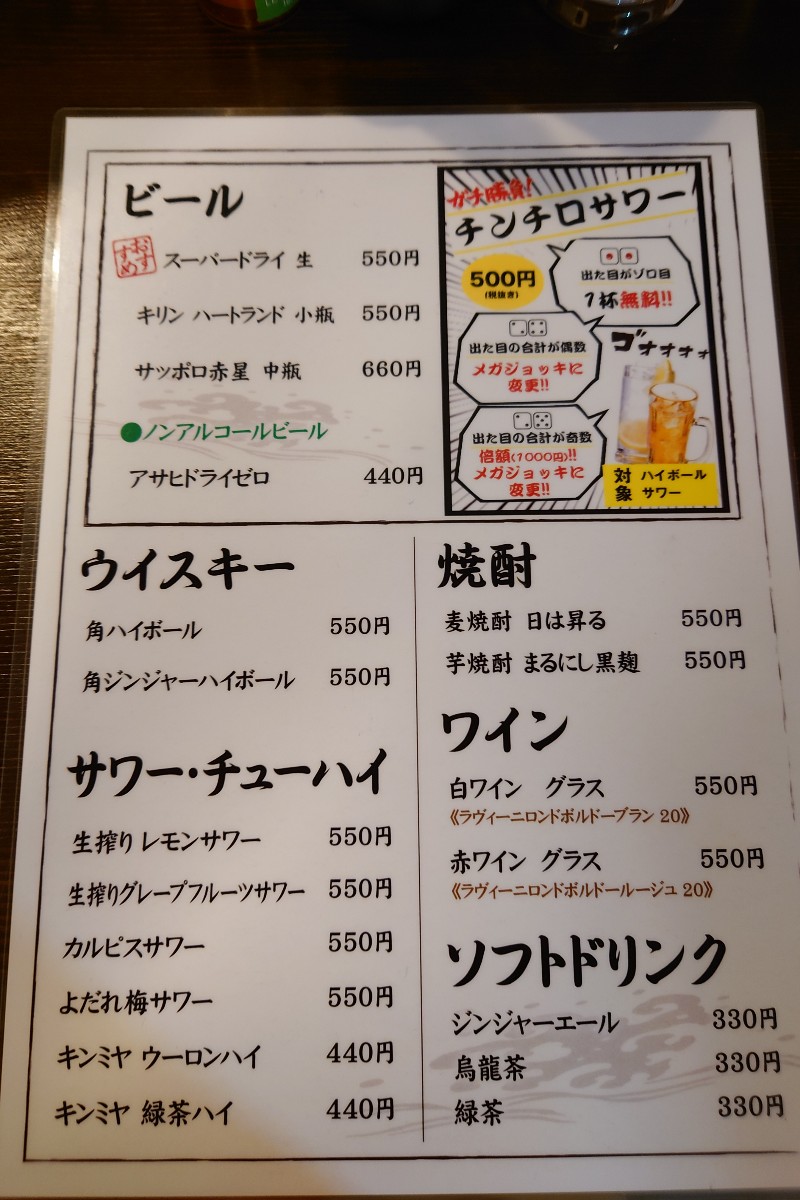 ビール
おすすめ
スーパードライ 生 550円
キリン ハートランド 小瓶 550円
サッポロ赤星 中瓶 660円
●ノンアルコールビール
アサヒドライゼロ 440円
ガチ勝負!
チンチロサワー
500円
(税抜き)
出た目がゾロ目
1杯無料!!
出た目の合計が偶数
メガジョッキに
変更!!
ゴオォォォ
出た目の合計が奇数
倍額(1000円)!!
メガジョッキに
変更!!
対象 ハイボール
サワー
ウイスキー
角ハイボール 550円
角ジンジャーハイボール 550円
サワー・チューハイ
生搾り レモンサワー 550円
生搾りグレープフルーツサワー 550円
カルピスサワー 550円
よだれ梅サワー 550円
キンミヤ ウーロンハイ 440円
キンミヤ 緑茶ハイ 440円
焼酎
麦焼酎 日は昇る 550円
芋焼酎 まるにし黒麹 550円
ワイン
白ワイン グラス 550円
《ラヴィーニロンドボルドーブラン 20》
赤ワイン グラス 550円
《ラヴィーニロンドボルドールージュ 20》
ソフトドリンク
ジンジャーエール 330円
烏龍茶 330円
緑茶 330円